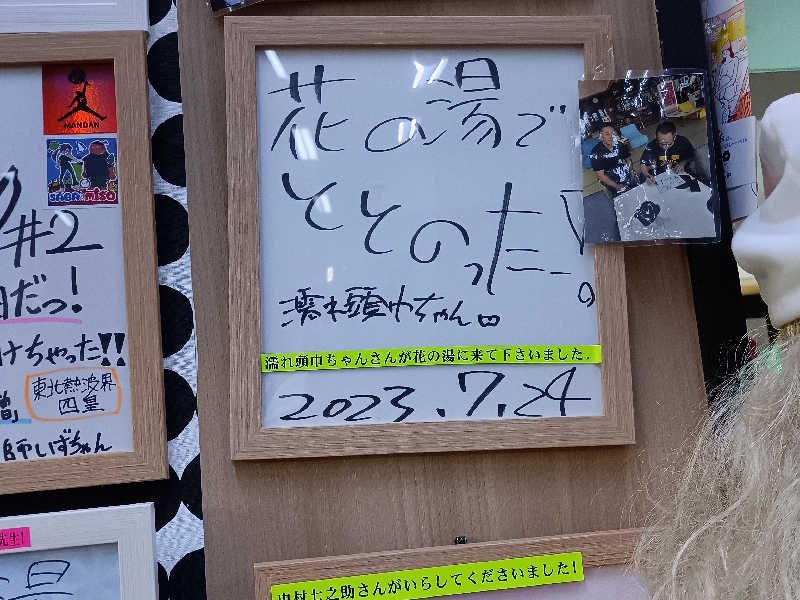 花の湯で
ととのった!
濡れ頭巾ちゃん
濡れ頭巾ちゃんさんが花の湯に来て下さいました。
2023.7.24
MANDAN
SABA miso
#2
だっ!
けちゃった!!
東北熱波界
四皇
師しずちゃん
先生!
湯
中村七之助さんがいらしてくださいました!